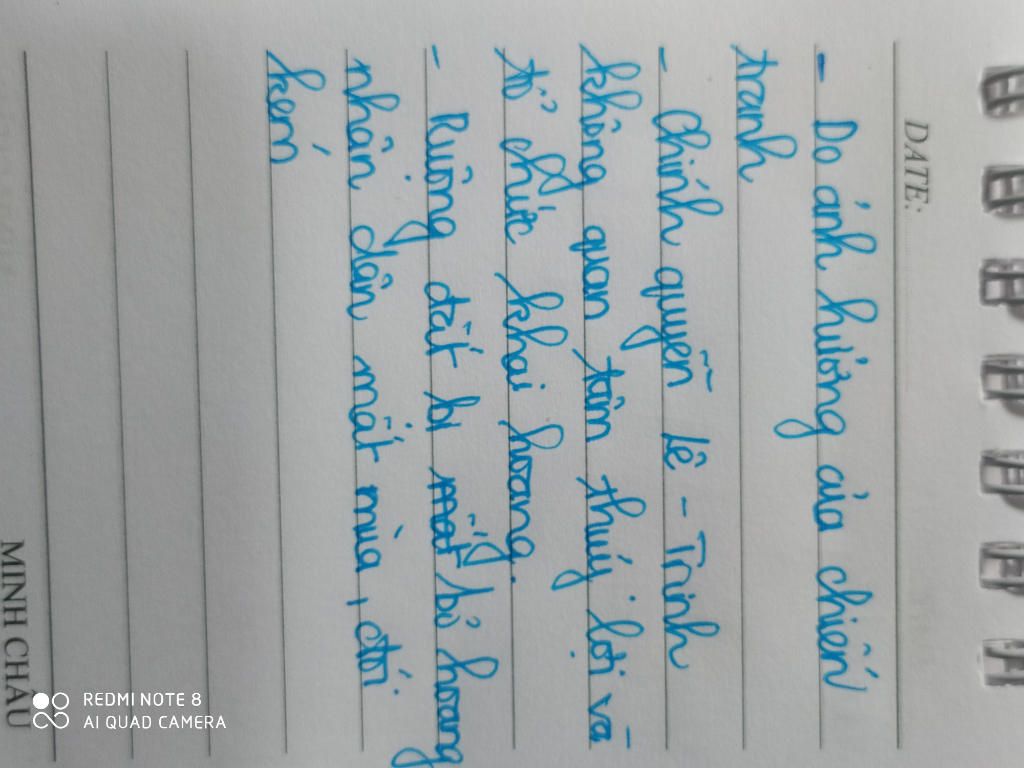 DATE:
- Do ảnh hưởng của chiến
tranh
- Chính quyền Lê - Trịnh
không quan tâm thuỷ lợi và
tổ chức khai hoang.
- Ruộng đất bị bỏ hoang
nhân dân mất mùa, đói
kém
MINH CHÂU
REDMI NOTE 8
AI QUAD CAMERA